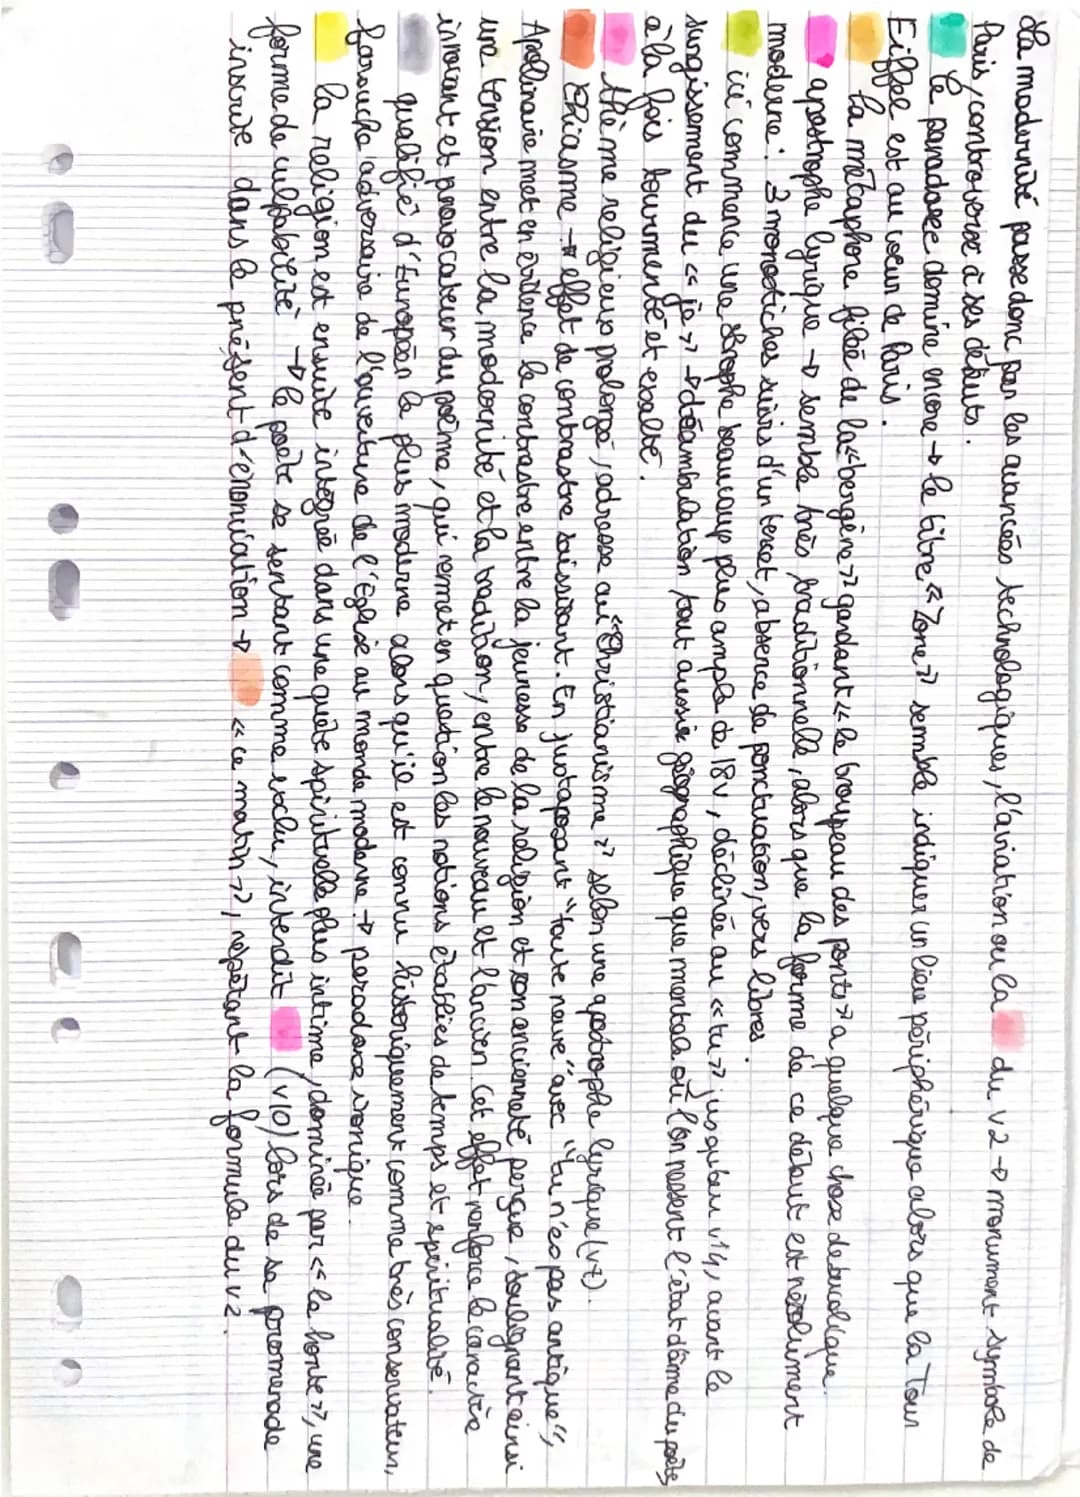 La modernité passe donc par les avancées technologiques, l'aviation ou la du v2 → monument symbole de
Paris, controverse à ses débuts.
Le paradoxe domine encore → le titre « Zone » semble indiquer un lieu périphérique alors que la Tour
Eiffel est au coeur de Paris.
la métaphore filée de la « bergère » gardant « le troupeau des ponts » a quelque chose de bucolique.
apostrophe lyrique → semble très traditionnelle, alors que la forme de ce début est résolument
moderne : 3 monostiches suivis d'un terset, absence de ponctuation, vers libres.
ici commence une strophe beaucoup plus ample de 18v, déclinée au « tu » jusqu'au v14, avant le
surgissement du « je » → déambulation tout aussi géographique que mentale où l'on ressent l'état d'âme du poète,
à la fois tourmenté et exalté.
thème religieux prolongé, adresse au "Christianisme" selon une apostrophe lyrique (v7).
Chiasme → effet de contrastre saisissant. En juxtaposant "toute neuve" avec "tu n'es pas antique",
Apolinaire met en évidence le contrastre entre la jeunesse de la religion et son ancienneté perçue, soulignant ainsi
une tension entre la modernité et la tradition, entre le nouveau et l'ancien. Cet effet renforce le caractère
innovant et provocateur du poème, qui remet en question les notions établies de temps et spiritualité.
qualifié d'Européen le plus moderne alors qu'il est connu historiquement comme très conservateur,
farouche adversaire de l'ouverture de l'Eglise au monde moderne → paradoxe ironique.
la religion est ensuite intégrée dans une quête spirituelle plus intime, dominée par « la honte », une
forme de culpabilité → le poète se sentant comme exclu, interdit (v10) lors de sa promenade
inscrite dans le présent d'énonciation → « ce matin », répétant la formule du v2.